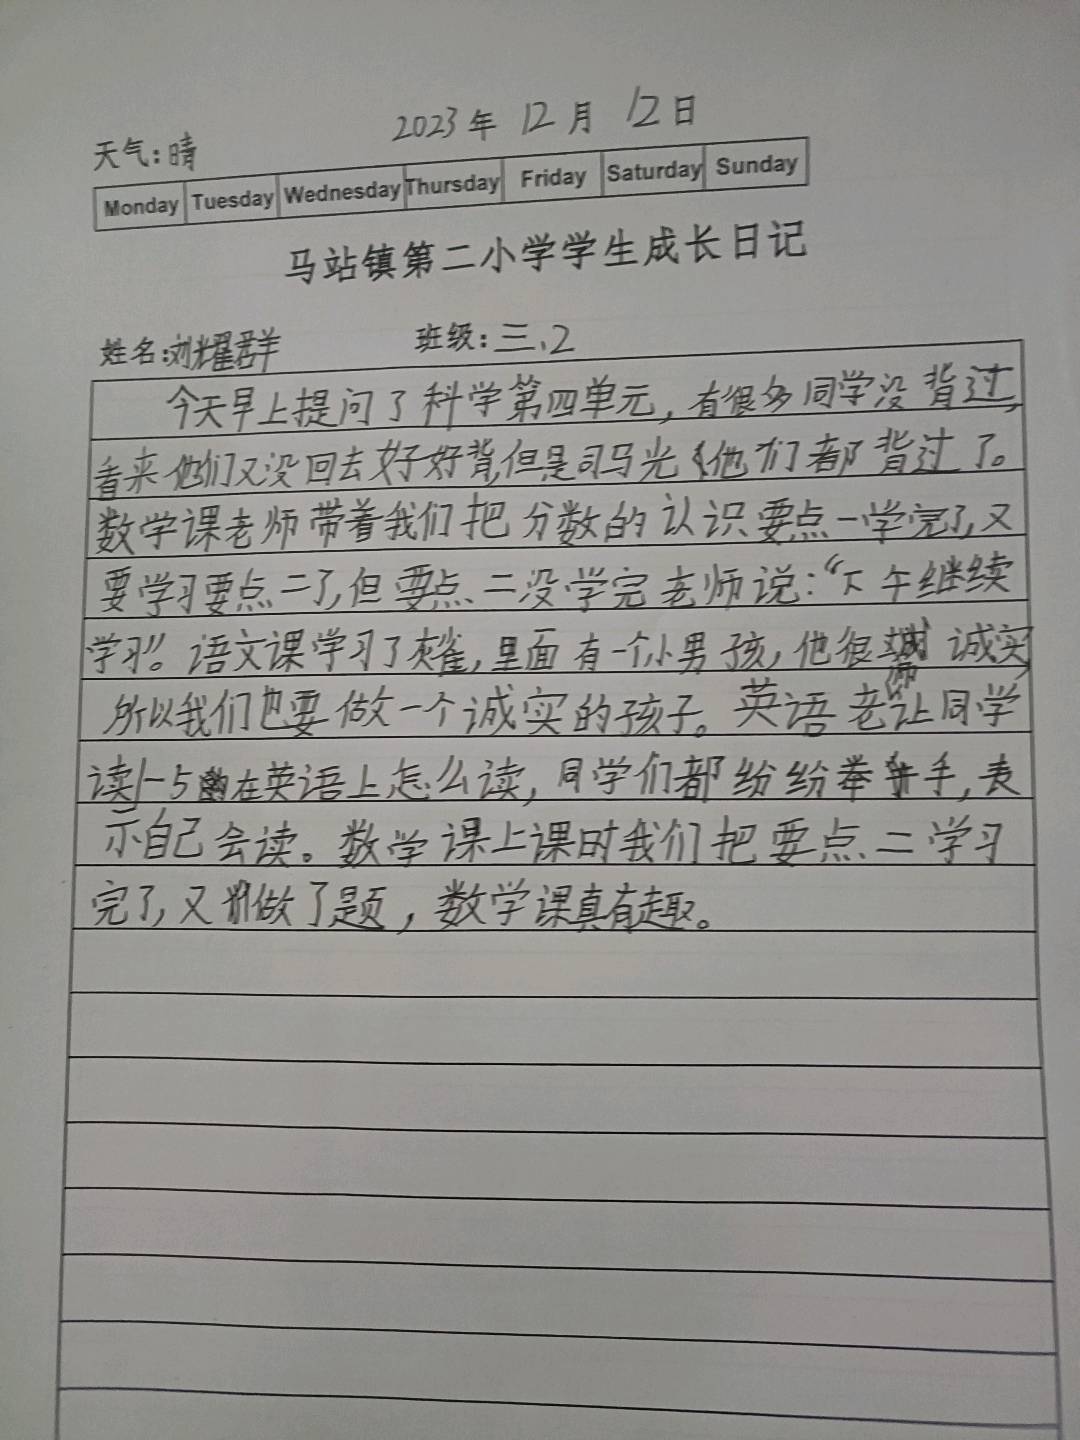 2023年 12月 12日
天气:晴
Monday Tuesday Wednesday Thursday Friday Saturday Sunday
马站镇第二小学学生成长日记
姓名:刘耀群 班级:三.2
今天早上提问了科学第四单元,有很多同学没背过,
看来他们又没回去好好背,但是司马光他们都背过了。
数学课老师带着我们把分数的认识要点一学完了,又
要学习要点二了,但要点二没学完老师说:“下午继续
学习”。语文课学习了灰雀,里面有一个小男孩,他很诚实,
所以我们也要做一个诚实的孩子。英语老师让同学
读1-5在英语上怎么读,同学们都纷纷举手,表
示自己会读。数学课上课时我们把要点二学习
完了,又做了题,数学课真有趣。